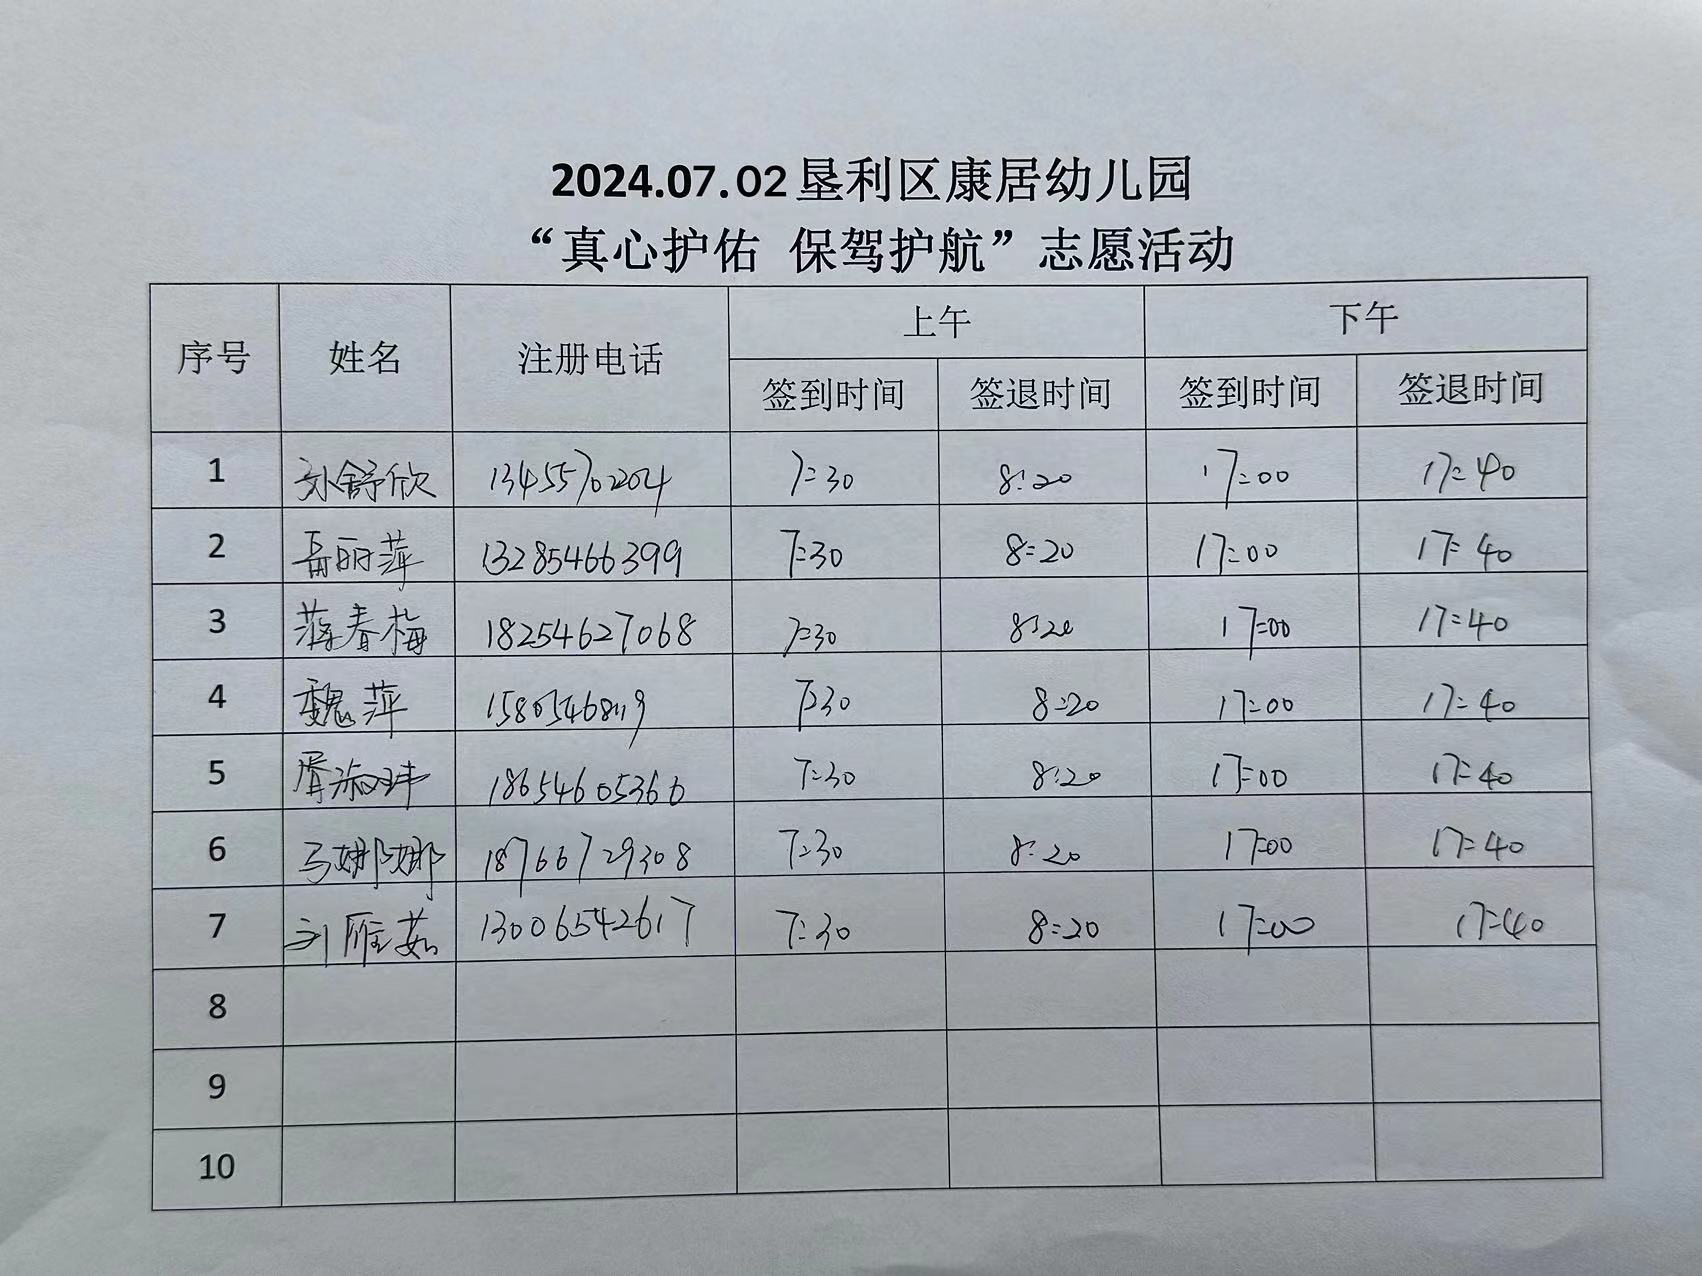 2024.07.02垦利区康居幼儿园
“真心护佑 保驾护航”志愿活动
序号 姓名 注册电话 上午 下午
签到时间 签退时间 签到时间 签退时间
1 刘舒欣 13455702204 7:30 8:20 17:00 17:40
2 岳丽萍 13285466399 7:30 8:20 17:00 17:40
3 蒋春梅 18254627068 7:30 8:20 17:00 17:40
4 魏萍 7:30 8:20 17:00 17:40
5 胥淑玮 18654605366 7:30 8:20 17:00 17:40
6 马娜娜 18766729308 7:30 8:20 17:00 17:40
7 刘雁茹 13006542617 7:30 8:20 17:00 17:40
8
9
10